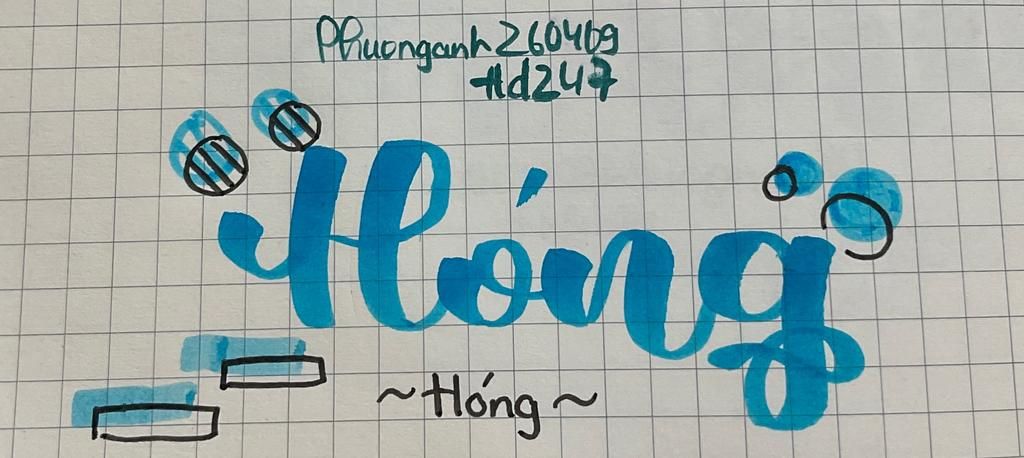 Phuonganh260469
Hd247
Hóng
~Hóng~